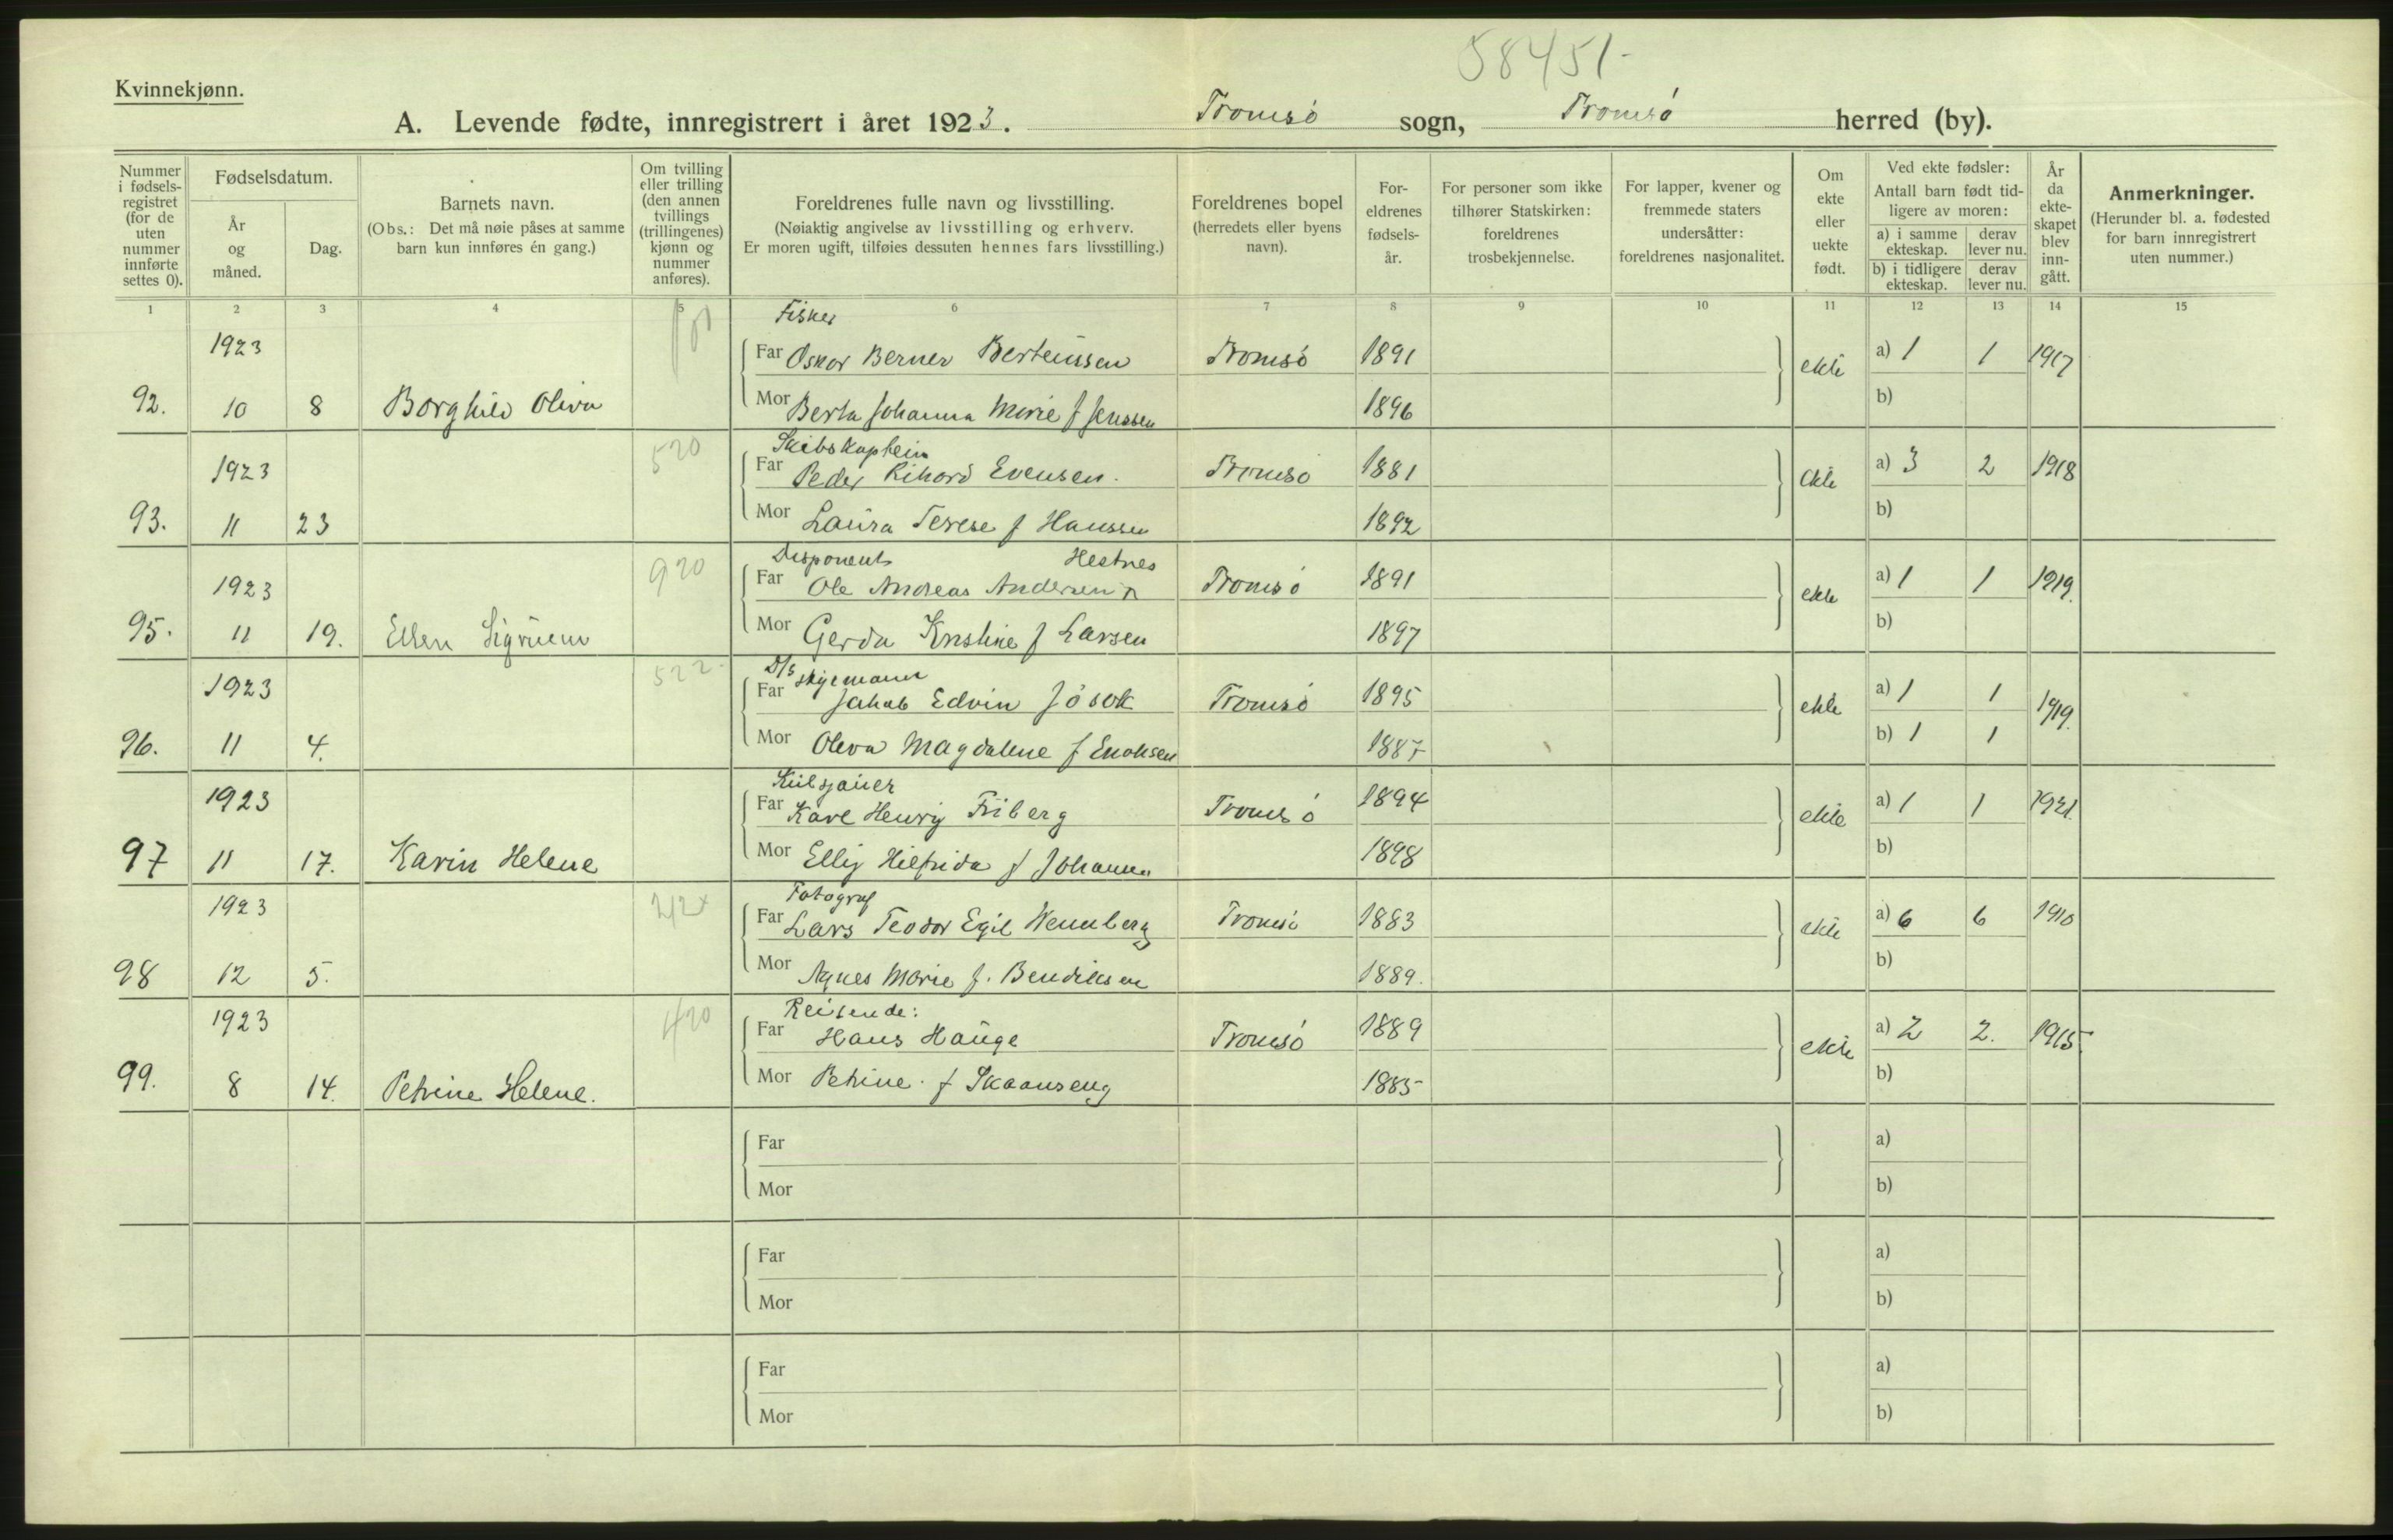 58451-
Kvinnekjønn.
A. Levende fødte, innregistrert i året 1923. Tromsö sogn, Tromsö herred (by).
Nummer i fødsels-registret (for de uten nummer innførte settes 0).
Fødselsdatum.
År og måned.
Dag.
Barnets navn.
(Obs.: Det må nøie påses at samme barn kun innføres én gang.)
Om tvilling eller trilling (den annen tvillings (trillingenes) kjønn og nummer anføres).
Foreldrenes fulle navn og livsstilling.
(Nøiaktig angivelse av livsstilling og erhverv.
Er moren ugift, tilføies dessuten hennes fars livsstilling.)
Foreldrenes bopel (herredets eller byens navn).
For-eldrenes fødsels-år.
For personer som ikke tilhører Statskirken: foreldrenes trosbekjennelse.
For lapper, kvener og fremmede staters undersåtter: foreldrenes nasjonalitet.
Om ekte eller uekte født.
Ved ekte fødsler:
Antall barn født tid-ligere av moren:
a) i samme ekteskap. derav lever nu.
b) i tidligere ekteskap. derav lever nu.
År da ekte-skapet blev inn-gått.
Anmerkninger.
(Herunder bl. a. fødested for barn innregistrert uten nummer.)
1 2 3 4 5 6 7 8 9 10 11 12 13 14 15
Fisker
1923 Far Oskar Berner Berteussen Tromsö 1891 ekte a) 1 1 1917
92. 10 8 Borghild Oliva Mor Berta Johanna Marie f Jenssen 1896 b)
520 Skibskaptein
1923 Far Peder Rikard Evensen. Tromsö 1881 ekte a) 3 2 1918
93. 11 23 Mor Laura Terese f Hanssen 1892 b)
920 Disponent Hestnes
1923 Far Ole Andreas Andersen Tromsö 1891 ekte a) 1 1 1919.
95. 11 19. Ellen Sigruenn Mor Gerda Kristine f Larsen 1897 b)
522- D/s
1923 Far Jakob Edvin Jösok Tromsö 1895 ekte a) 1 1 1919.
96. 11 4. Mor Oleva Magdalene f Enoksen 1887 b) 1 1
1923 Far Kare Henry Friberg Tromsö 1894 ekte a) 1 1 1921.
97 11 17. Karin Helene Mor Elly Hilfrida f 1898 b)
Fotograf
1923 Far Lars Teodor Egil Wennberg Tromsö 1883 ekte a) 6 6 1910
98 12 5. Mor Agnes Marie f. Bendiksen 1889. b)
420 Reisende:
1923 Far Hans Hauge Tromsö 1889 ekte a) 2 2. 1915.
99. 8 14. Petrine Helene. Mor Petrine. f Skaanseng 1885 b)
Far a)
Mor b)
Far a)
Mor b)
Far a)
Mor b)